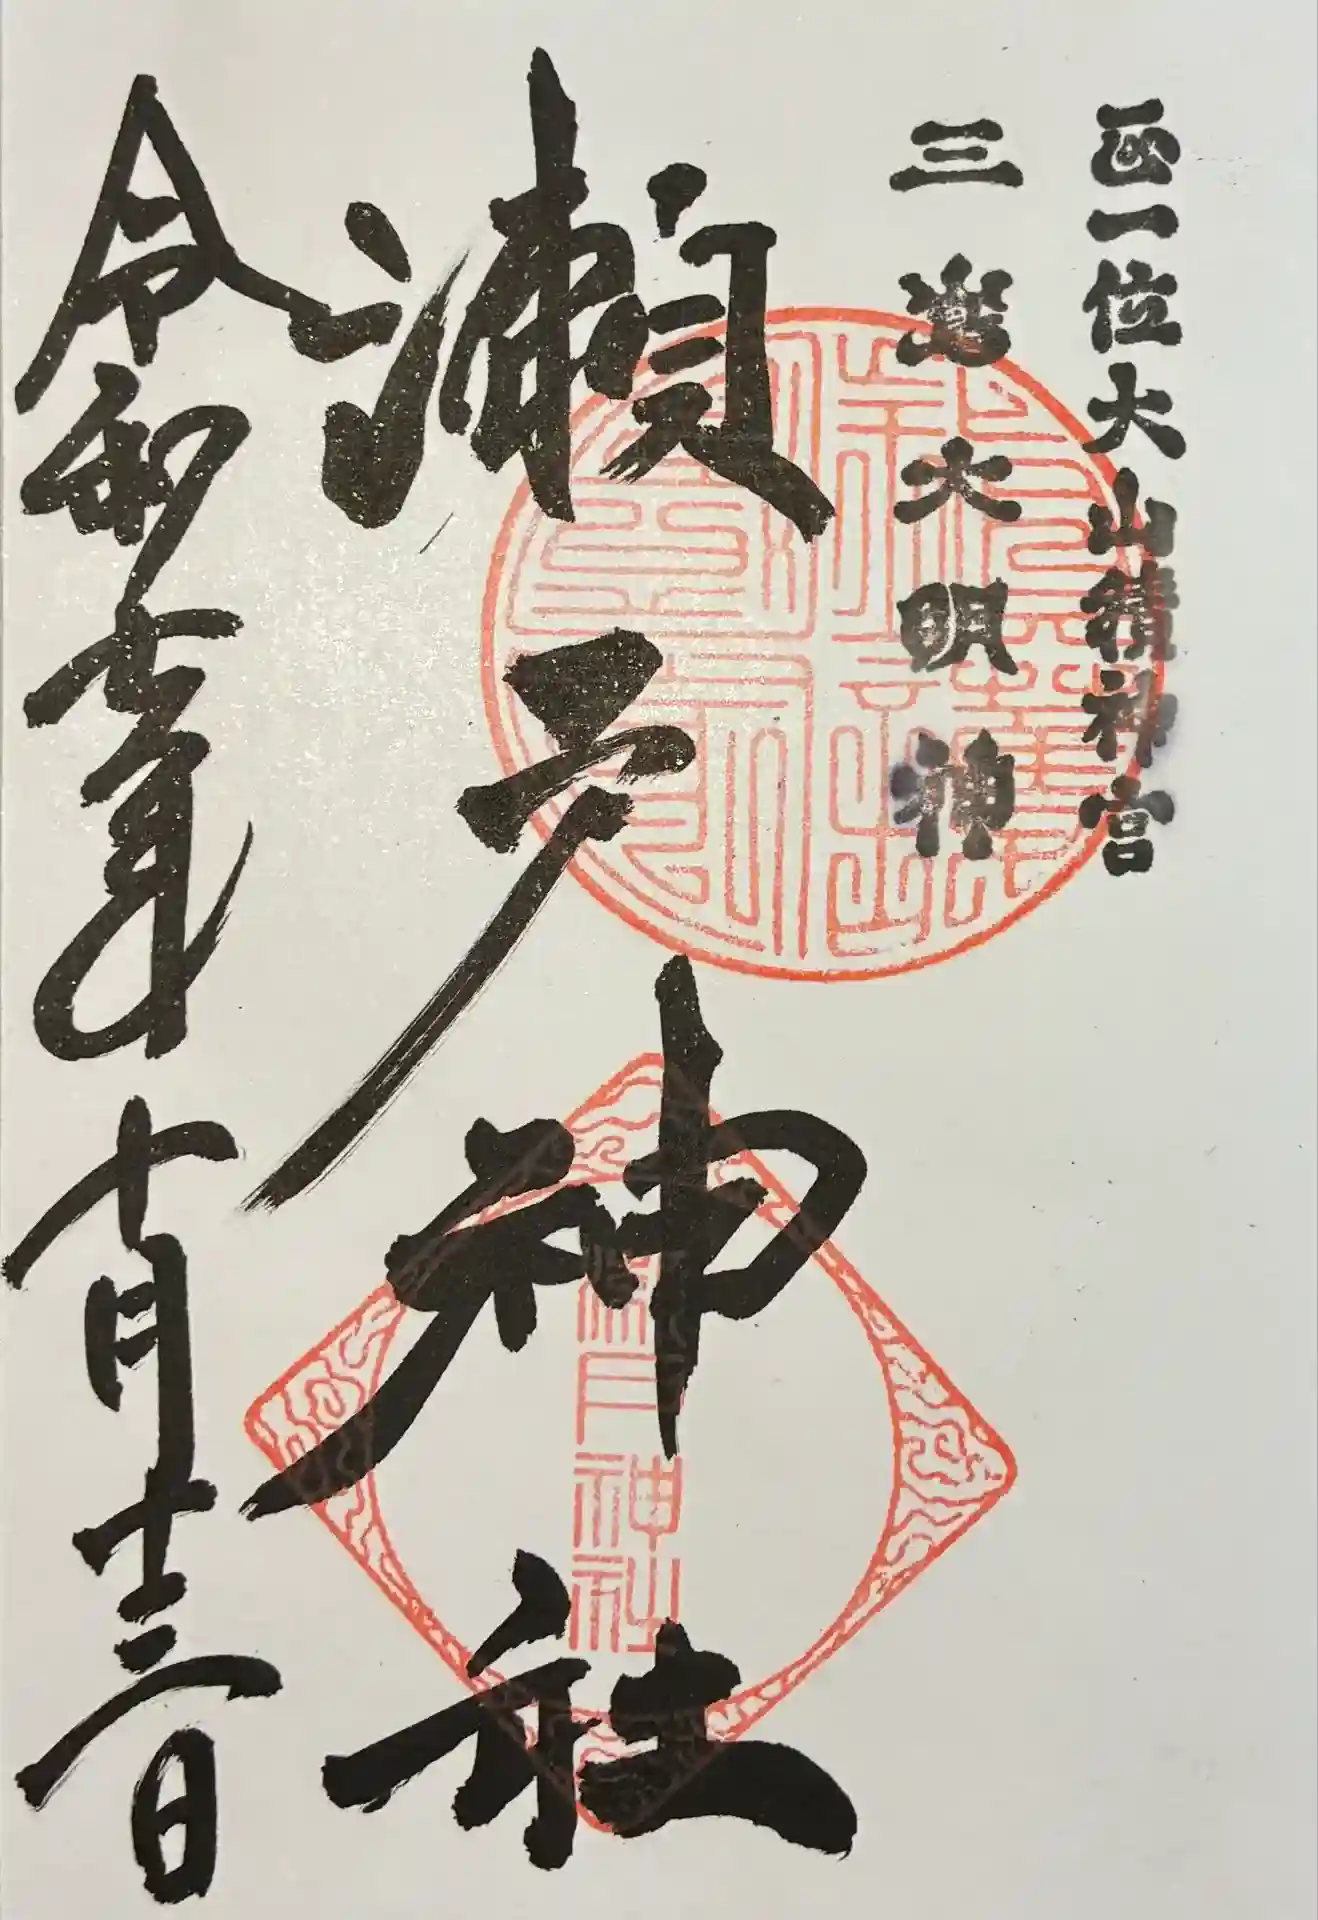 正一位大山積神宮
三嶌大明神
瀬戸神社
令和七年十月十三日
瀬戸神社